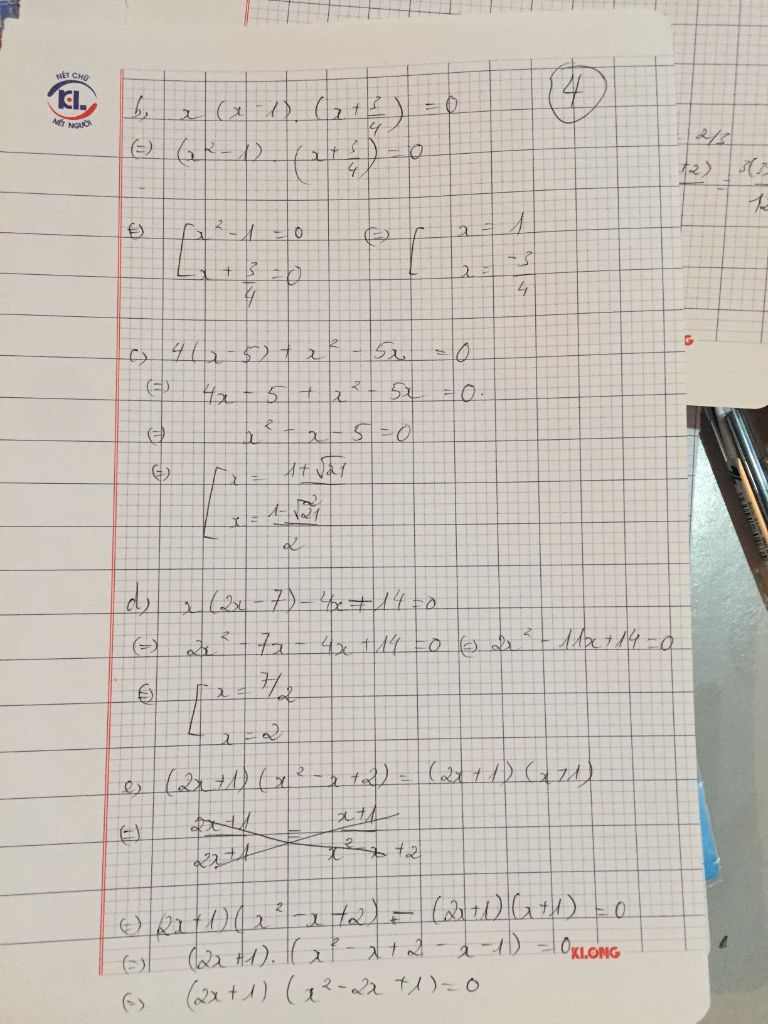 NÉT CHỮ
K.L
NẾT NGƯỜI
4
b, x (x - 1). (x + 3/4) = 0
(=) (x² - 1). (x + 3/4) = 0
(=) [ x² - 1 = 0 (=) [ x = 1
x + 3/4 = 0 x = -3/4
c) 4(x - 5) + x² - 5x = 0
(=) 4x - 5 + x² - 5x = 0.
(=) x² - x - 5 = 0
(=) [ x = 1+√21/2
x = 1-√21/2
d) x(2x - 7) - 4x + 14 = 0
(=) 2x² - 7x - 4x + 14 = 0 (=) 2x² - 11x + 14 = 0
(=) [ x = 7/2
x = 2
e) (2x+1)(x² - x + 2) = (2x+1)(x+1)
(=) 2x+1/2x+1 = x+1/x² - x + 2
(=) (2x+1)(x² - x + 2) - (2x+1)(x+1) = 0
(=) (2x+1). (x² - x + 2 - x - 1) = 0
KLONG
(=) (2x+1) (x² - 2x + 1) = 0
= 2/3
+2) = 3(3
12
G